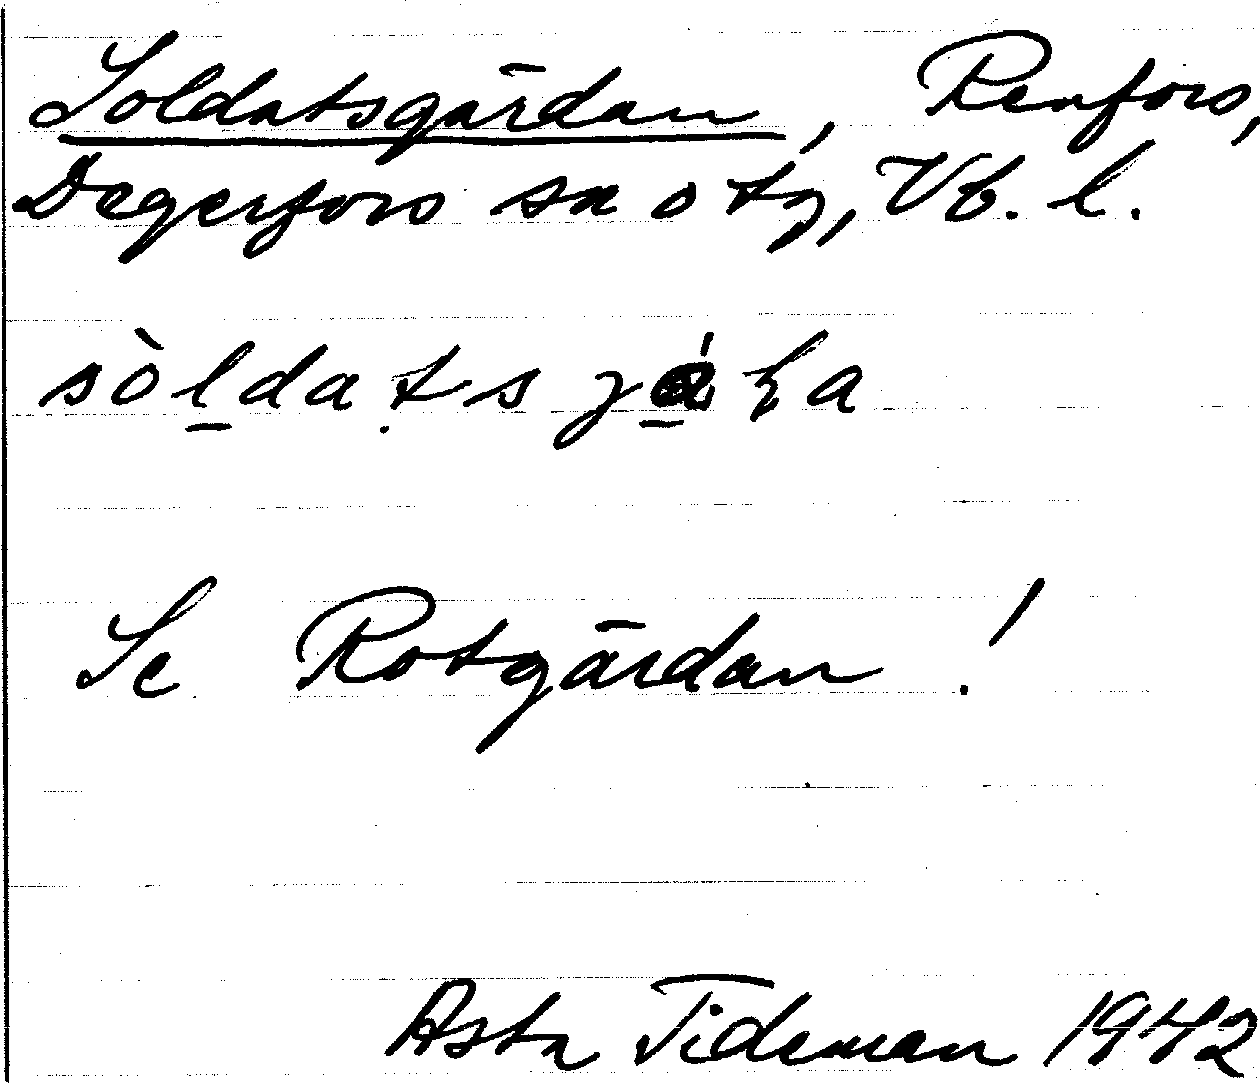 Soldatsgärdan, Renfors,
Degerfors sn o tg, Vb. l.
sòldatsgáɽa
Se Rotgärdan!
Asta Tideman 1942